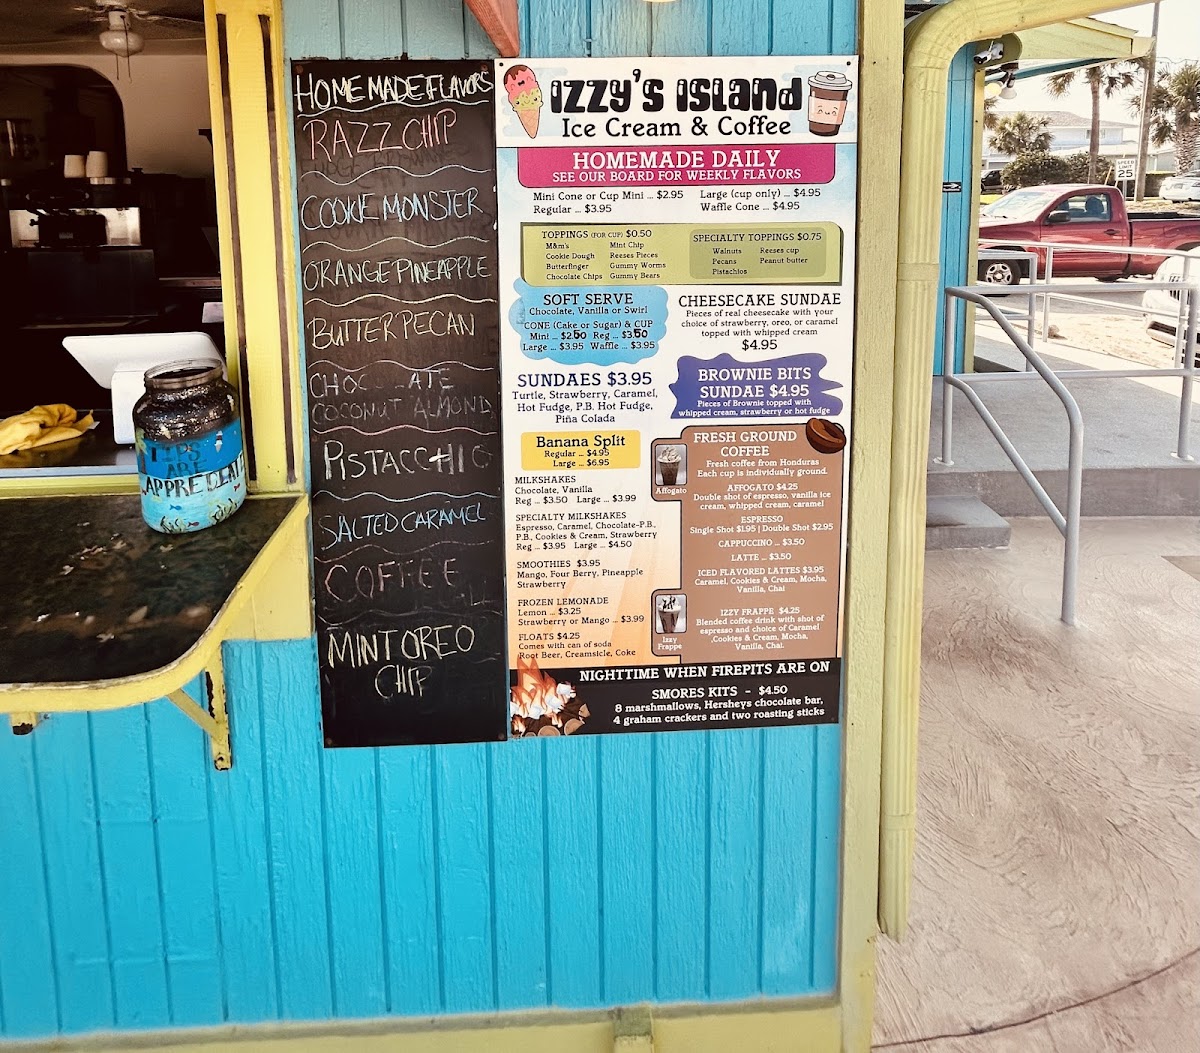 HOMEMADE FLAVORS
RAZZ CHIP
COOKIE MONSTER
ORANGE PINEAPPLE
BUTTER PECAN
CHOC LATE
COCONUT ALMOND
PISTACCHIO
SALTED CARAMEL
COFFEE
MINT OREO
CHIP
TIPS
ARE
APPRECIATED
IZZY'S ISLAND
Ice Cream & Coffee
HOMEMADE DAILY
SEE OUR BOARD FOR WEEKLY FLAVORS
Mini Cone or Cup Mini ... $2.95
Regular ... $3.95
Large (cup only) ... $4.95
Waffle Cone ... $4.95
TOPPINGS (FOR CUP) $0.50
M&m's
Cookie Dough
Butterfinger
Chocolate Chips
Mint Chip
Reeses Pieces
Gummy Worms
Gummy Bears
SPECIALTY TOPPINGS $0.75
Walnuts
Pecans
Pistachios
Reeses cup
Peanut butter
SOFT SERVE
Chocolate, Vanilla or Swirl
CONE (Cake or Sugar) & CUP
Mini ... $2.50 Reg ... $3.50
Large ... $3.95 Waffle ... $3.95
CHEESECAKE SUNDAE
Pieces of real cheesecake with your
choice of strawberry, oreo, or caramel
topped with whipped cream
$4.95
SUNDAES $3.95
Turtle, Strawberry, Caramel,
Hot Fudge, P.B. Hot Fudge,
Piña Colada
BROWNIE BITS
SUNDAE $4.95
Pieces of Brownie topped with
whipped cream, strawberry or hot fudge
Banana Split
Regular ... $4.95
Large ... $6.95
MILKSHAKES
Chocolate, Vanilla
Reg ... $3.50 Large ... $3.99
SPECIALTY MILKSHAKES
Espresso, Caramel, Chocolate-P.B.,
P.B., Cookies & Cream, Strawberry
Reg ... $3.95 Large ... $4.50
SMOOTHIES $3.95
Mango, Four Berry, Pineapple
Strawberry
FROZEN LEMONADE
Lemon ... $3.25
Strawberry or Mango ... $3.99
FLOATS $4.25
Comes with can of soda
Root Beer, Creamsicle, Coke
FRESH GROUND
COFFEE
Fresh coffee from Honduras
Each cup is individually ground.
Affogato
AFFOGATO $4.25
Double shot of espresso, vanilla ice
cream, whipped cream, caramel
ESPRESSO
Single Shot $1.95 | Double Shot $2.95
CAPPUCCINO ... $3.50
LATTE ... $3.50
ICED FLAVORED LATTES $3.95
Caramel, Cookies & Cream, Mocha,
Vanilla, Chai
Izzy
Frappe
IZZY FRAPPE $4.25
Blended coffee drink with shot of
espresso and choice of Caramel
,Cookies & Cream, Mocha,
Vanilla, Chai.
NIGHTTIME WHEN FIREPITS ARE ON
SMORES KITS - $4.50
8 marshmallows, Hersheys chocolate bar,
4 graham crackers and two roasting sticks
SPEED
LIMIT
25